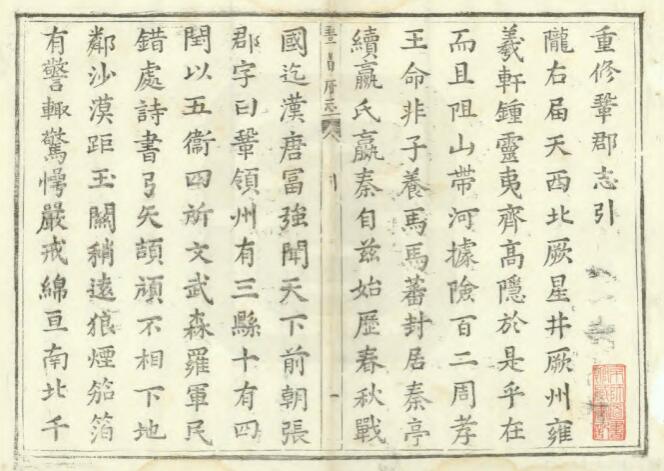 重修鞏郡志引
隴右届天西北厥星井厥州雍
羲軒鍾靈夷齊高隱於是乎在
而且阻山帶河據險百二周孝
王命非子養馬馬蕃封居秦亭
續嬴氏嬴秦自兹始歷春秋戰
國迄漢唐冨強聞天下前朝張
郡字曰鞏領州有三縣十有四
閒以五衞四所文武森羅軍民
錯處詩書弓矢頡頏不相下地
鄰沙漠距玉關稍遠狼煙笳箔
有警輙驚愕嚴戒綿亘南北千